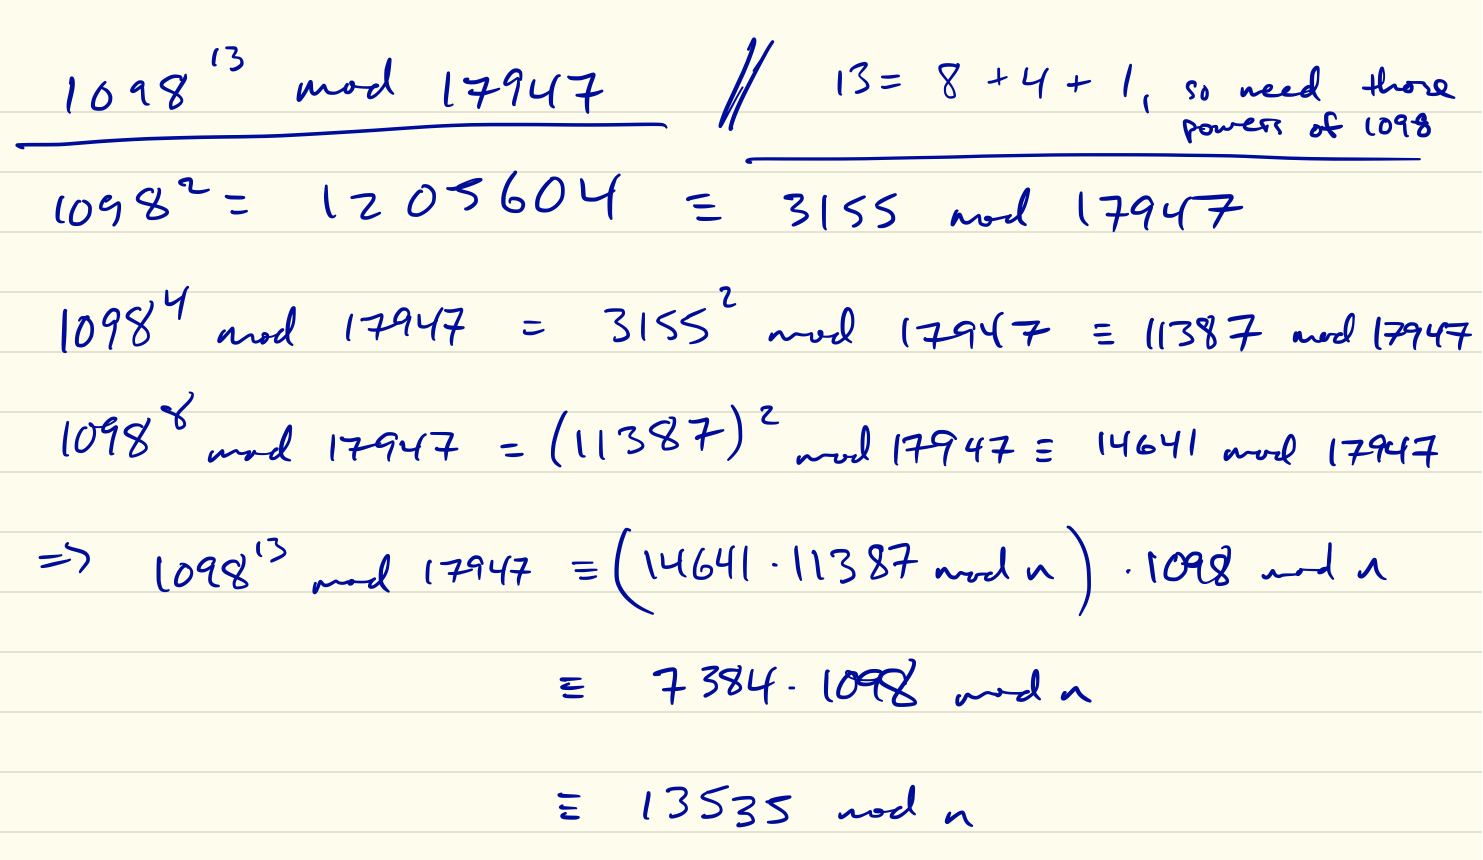 1098^13 mod 17947 // 13 = 8 + 4 + 1, so need those
powers of 1098
1098^2 = 1205604 ≡ 3155 mod 17947
1098^4 mod 17947 = 3155^2 mod 17947 ≡ 11387 mod 17947
1098^8 mod 17947 = (11387)^2 mod 17947 ≡ 14641 mod 17947
=> 1098^13 mod 17947 ≡ (14641 · 11387 mod n) · 1098 mod n
≡ 7384 · 1098 mod n
≡ 13535 mod n